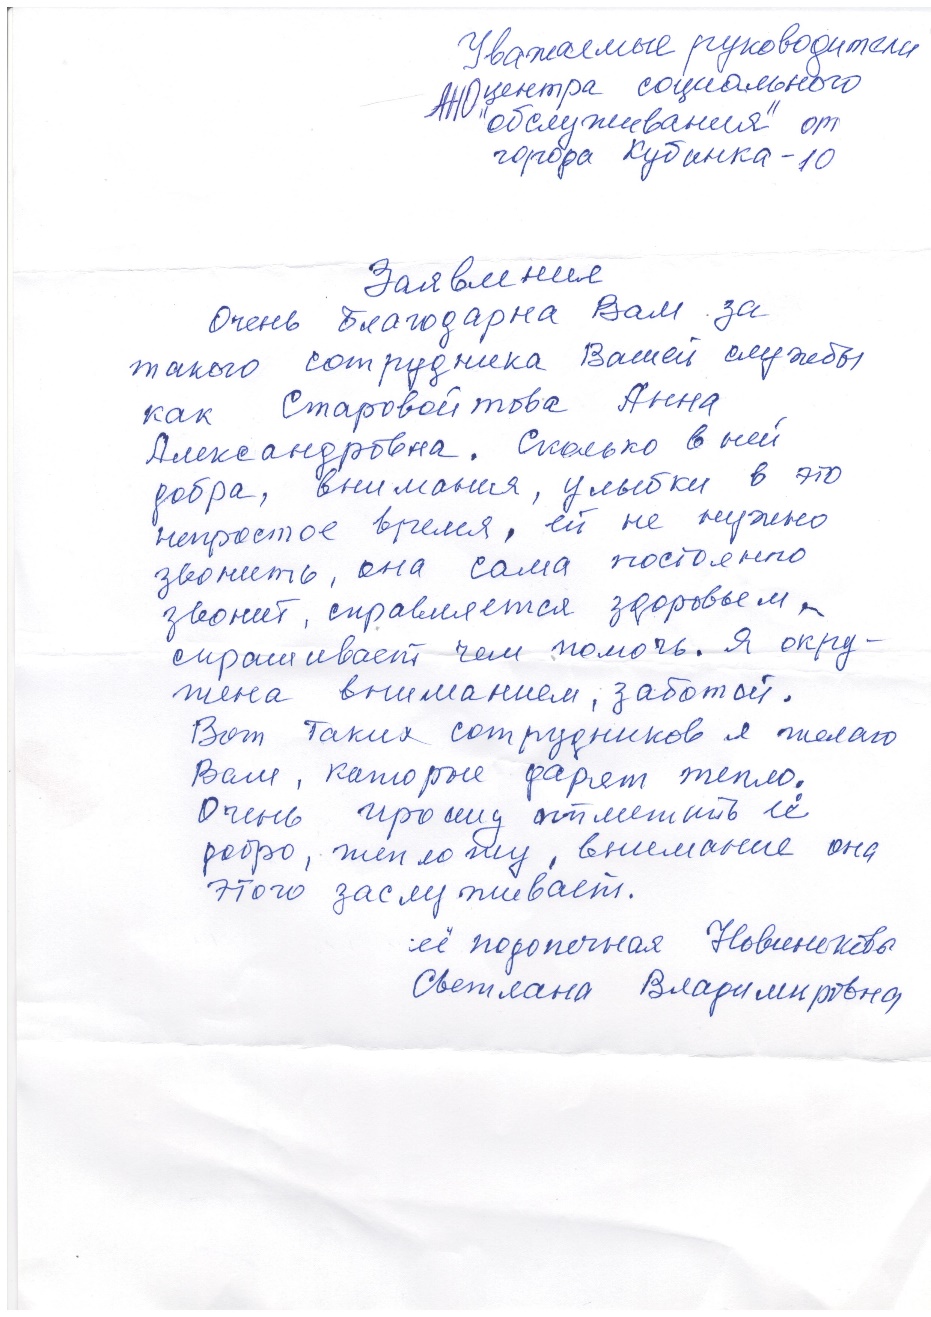 Уважаемые руководители
АНО центра социального
"обслуживания" от
города Кубинка-10
Заявления
Очень благодарна Вам за
такого сотрудника Вашей службы
как Старовойтова Анна
Александровна. Сколько в ней
добра, внимания, улыбки в это
непростое время, ей не нужно
звонить, она сама постоянно
звонит, справляется здоровьем,
спрашивает чем помочь. Я окру-
жена вниманием, заботой.
Вот таких сотрудников я желаю
Вам, которые дарят тепло.
Очень прошу отметить её
добро, теплоту, внимание она
этого заслуживает.
её подопечная
Светлана Владимировна